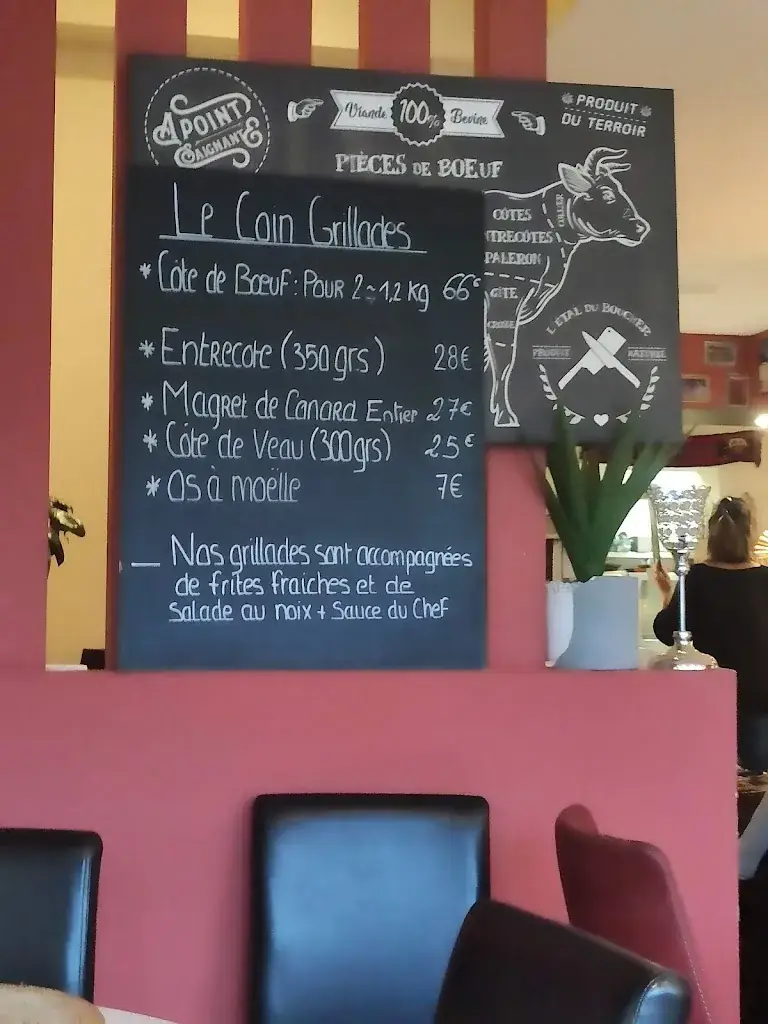 A POINT
SAIGNANTE
Viande 100% Bovine
PRODUIT
DU TERROIR
PIÈCES DE BOEUF
COLLIER
CÔTES
NTRECÔTES
PALERON
GÎTE
CROSSE
L'ÉTAL DU BOUCHER
PRODUIT NATUREL
Le Coin Grillades
* Côte de Bœuf : Pour 2 ~ 1,2 Kg 66€
* Entrecote (350grs) 28€
* Magret de Canard Entier 27€
* Côte de Veau (300grs) 25€
* Os à moëlle 7€
— Nos grillades sont accompagnées
de frites fraiches et de
Salade au noix + Sauce du Chef